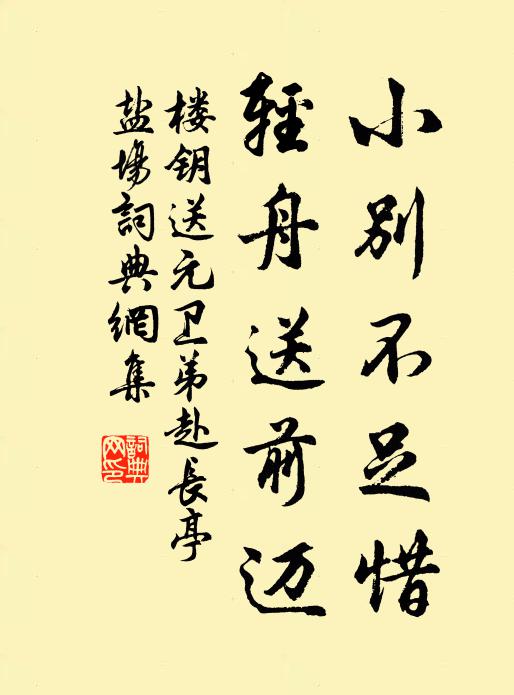 小别不足惜
輕舟送前迈
楼钥送元卫弟赴长亭
盐場詞典網集
詞典网印